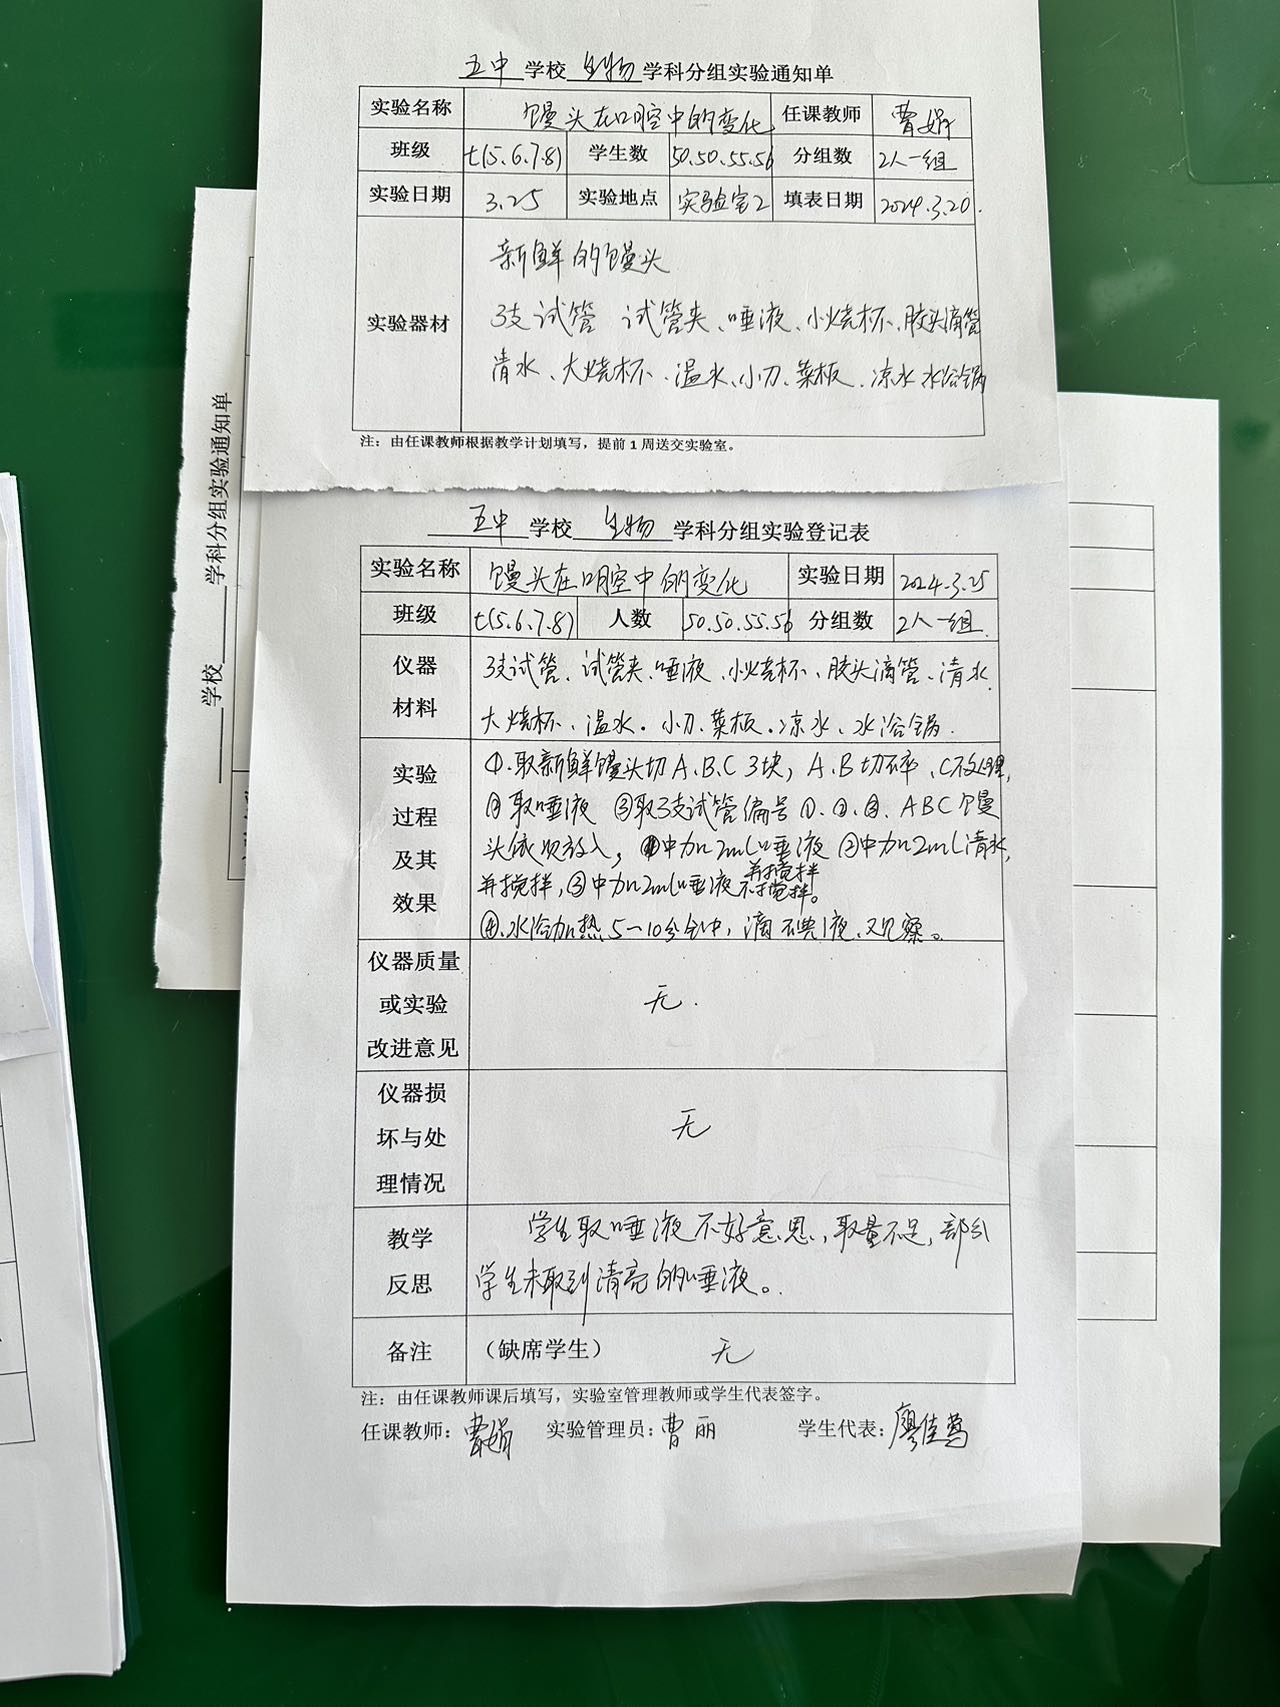 五中 学校 生物 学科分组实验通知单
实验名称 馒头在口腔中的变化 任课教师 曹娟
班级 七(5.6.7.8) 学生数 50.50.55.56 分组数 2人一组
实验日期 3.25 实验地点 实验室2 填表日期 2024.3.20.
新鲜的馒头
实验器材 3支试管 试管夹、唾液、小烧杯、胶头滴管
清水、大烧杯、温水、小刀、菜板、凉水 水浴锅
注：由任课教师根据教学计划填写，提前1周送交实验室。
学校 学科分组实验通知单
五中 学校 生物 学科分组实验登记表
实验名称 馒头在口腔中的变化 实验日期 2024.3.25
班级 七(5.6.7.8) 人数 50.50.55.56 分组数 2人一组.
仪器材料 3支试管、试管夹、唾液、小烧杯、胶头滴管、清水
大烧杯、温水.小刀.菜板.凉水、水浴锅.
实验过程及其效果 ①.取新鲜馒头切A、B、C 3块，A、B切碎、C不处理,
②取唾液 ③取3支试管编号①、②、③、ABC馒
头依次放入，①中加2mL唾液②中加2mL清水,
并搅拌
并搅拌,③中加2mL唾液不搅拌。
④.水浴加热5-10分钟,滴碘液、观察。
仪器质量或实验改进意见 无.
仪器损坏与处理情况 无
教学反思 学生取唾液不好意思,取量不足,部分
学生未取到清亮的唾液。
备注 （缺席学生） 无
注：由任课教师课后填写，实验室管理教师或学生代表签字。
任课教师：曹娟 实验管理员：曹丽 学生代表：廖佳莺